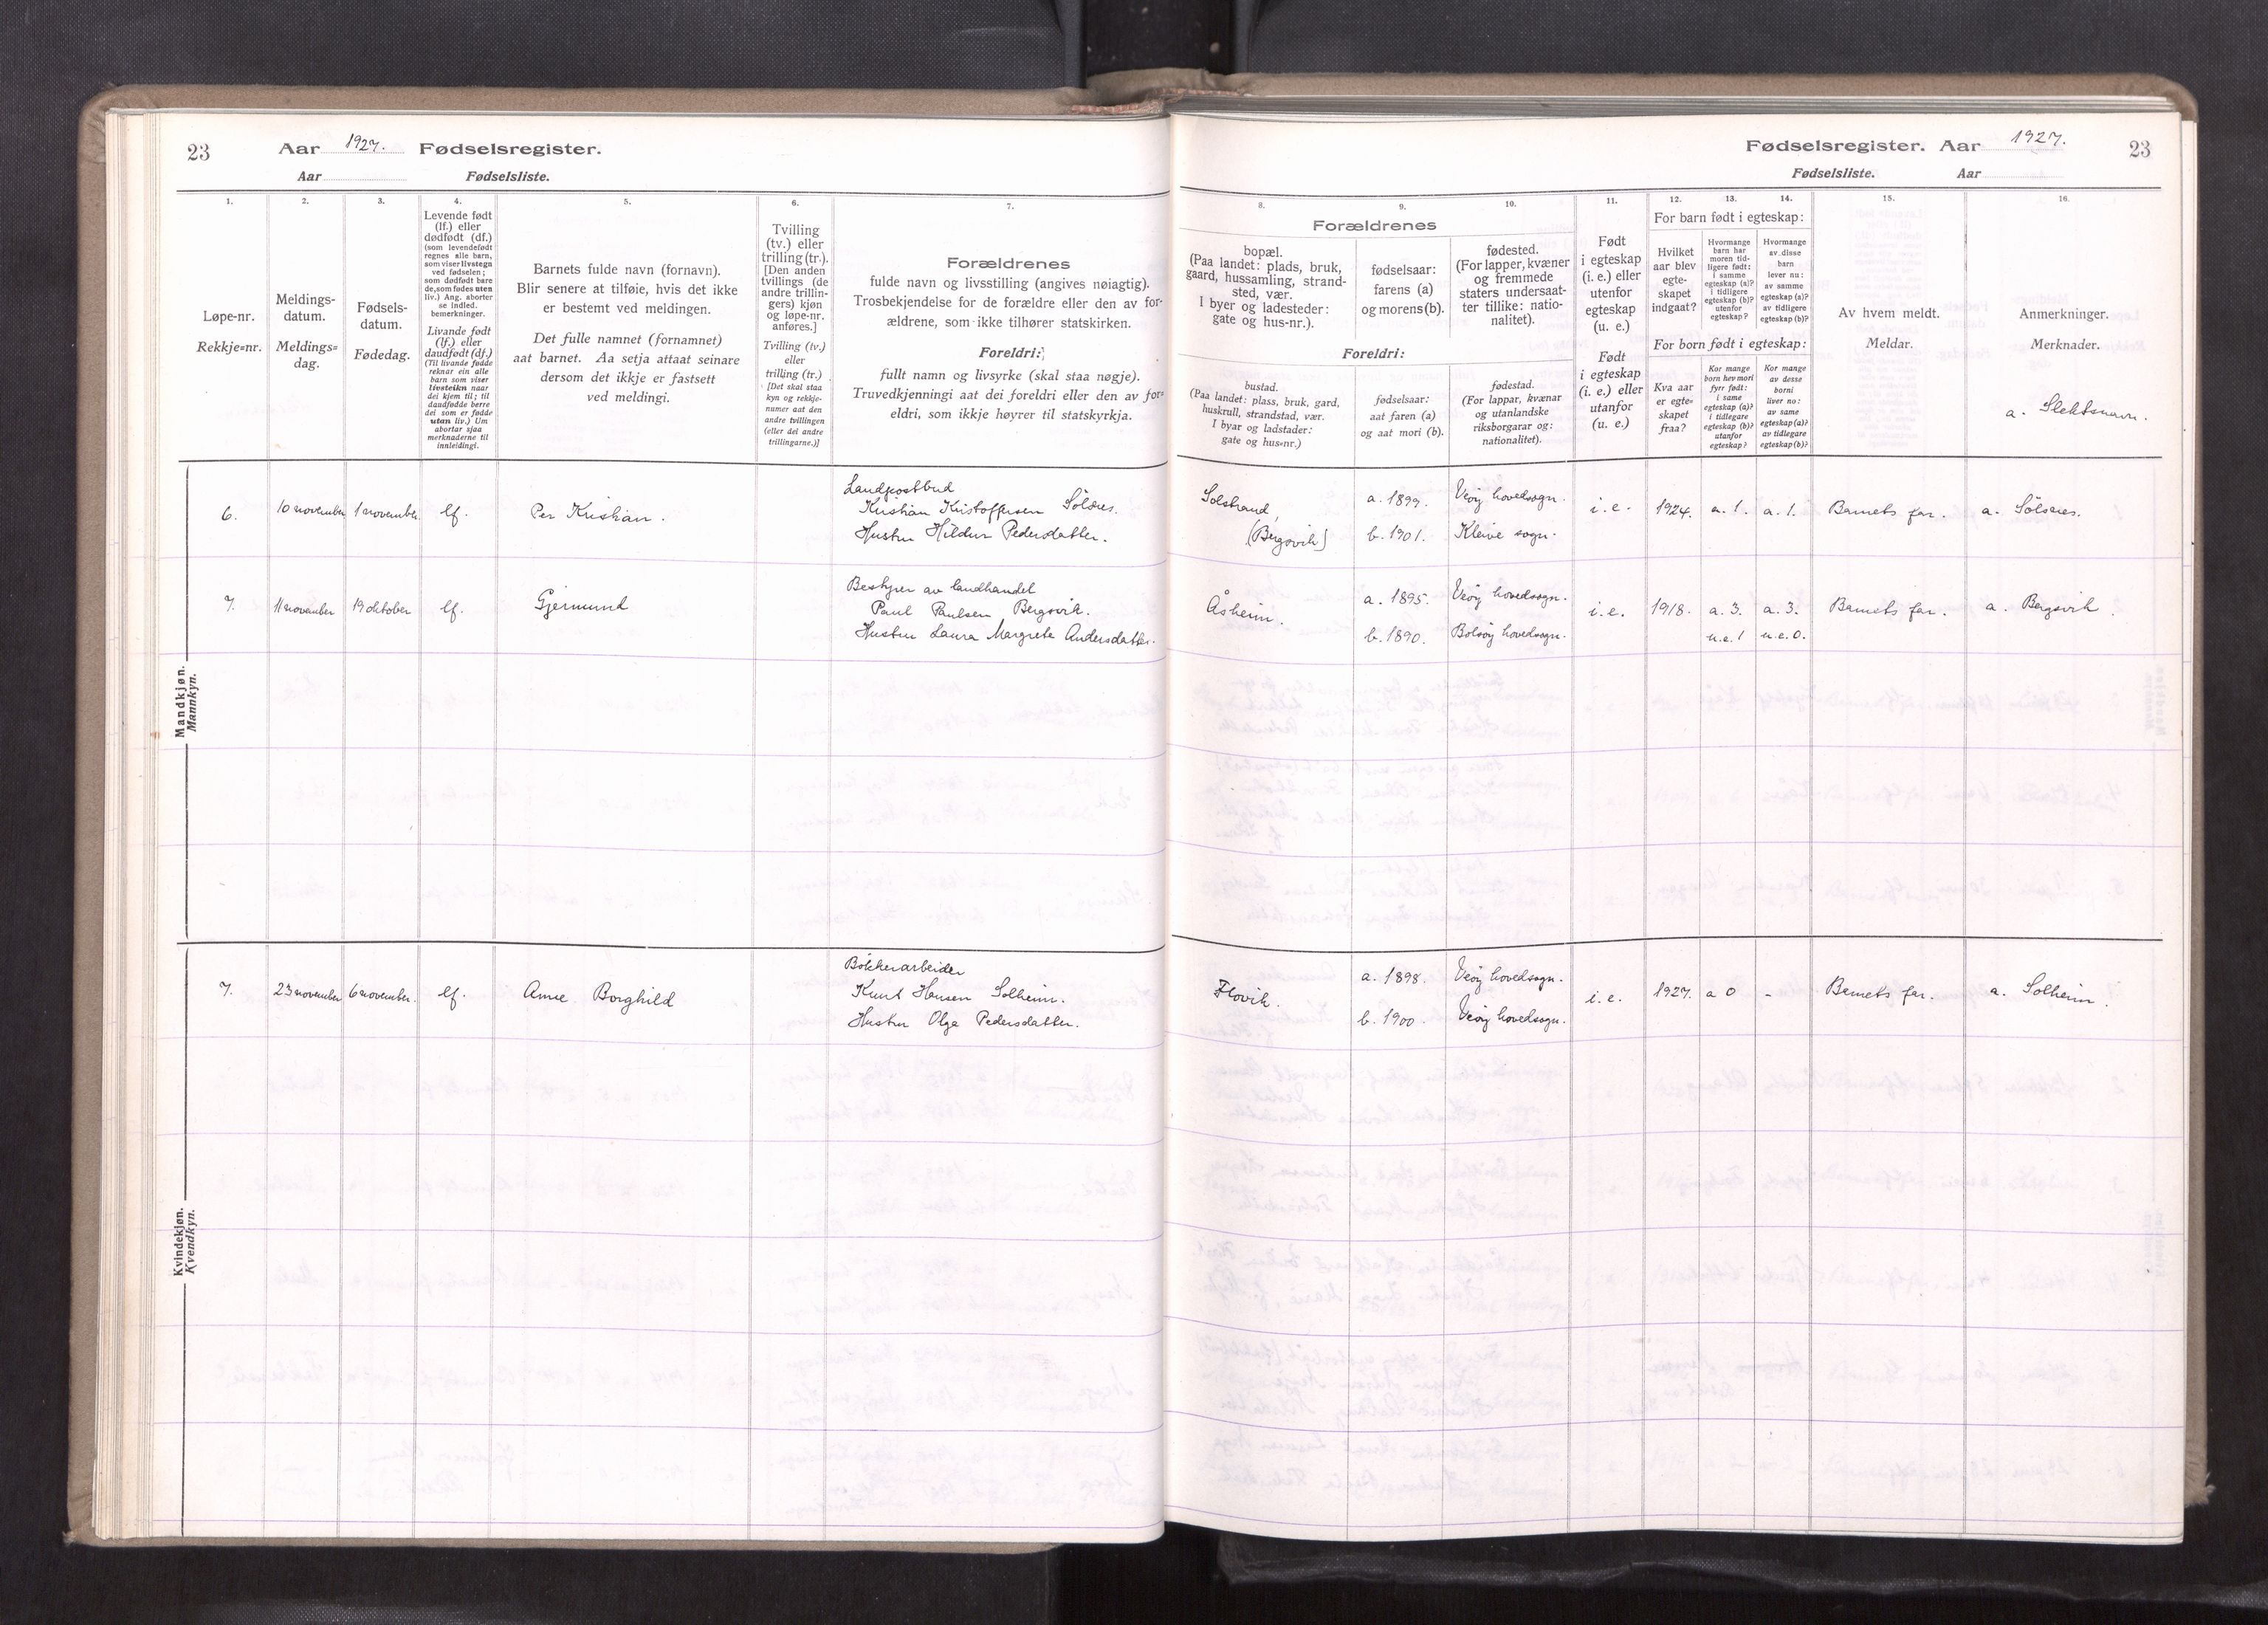 23 Aar 1927. Fødselsregister.
Aar Fødselsliste.
1.
Løpe-nr.
Rekkje=nr.
2.
Meldings-
datum.
Meldings=
dag.
3.
Fødsels-
datum.
Fødedag.
4.
Levende født
(lf.) eller
dødfødt (df.)
(som levendefødt
regnes alle barn,
som viser livstegn
ved fødselen;
som dødfødt bare
de, som fødes uten
liv.) Ang. aborter
se indled.
bemerkninger.
Livande født
(lf.) eller
daudfødt (df.)
(Til livande fødde
reknar ein alle
barn som viser
livsteikn naar
dei kjem til; til
daudfødde berre
dei som er fødde
utan liv.) Um
abortar sjaa
merknaderne til
innleidingi.
5.
Barnets fulde navn (fornavn).
Blir senere at tilføie, hvis det ikke
er bestemt ved meldingen.
Det fulle namnet (fornamnet)
aat barnet. Aa setja attaat seinare
dersom det ikkje er fastsett
ved meldingi.
6.
Tvilling
(tv.) eller
trilling (tr.).
[Den anden
tvillings (de
andre trillin-
gers) kjøn
og løpe-nr.
anføres.]
Tvilling (tv.)
eller
trilling (tr.)
[Det skal staa
kyn og rekkje-
numer aat den
andre tvillingen
(eller dei andre
trillingarne.)]
7.
Forældrenes
fulde navn og livsstilling (angives nøiagtig).
Trosbekjendelse for de forældre eller den av for-
ældrene, som ikke tilhører statskirken.
Foreldri:
fullt namn og livsyrke (skal staa nøgje).
Truvedkjenningi aat dei foreldri eller den av for=
eldri, som ikkje høyrer til statskyrkja.
Mandkjøn.
Mannkyn.
6. 10 november 1 november. lf. Per Kristian.
Landpostbud
Kristian Kristoffersen Sölsnes.
Hustru Hildur Pedersdatter.
7. 11 november 19 oktober lf. Gjermund
Bestyrer av landhandel
Paul Paulsen Bergsvik.
Hustru Laura Margrete Andersdatter.
Kvindekjøn.
Kvendkyn.
7. 23 november 6 november. lf. Anne Borghild
Bökkerarbeider
Knut Hansen Solheim.
Hustru Olga Pedersdatter.
Fødselsregister. Aar 1927. 23
Fødselsliste. Aar
8.
Forældrenes
bopæl.
(Paa landet: plads, bruk,
gaard, hussamling, strand-
sted, vær.
I byer og ladesteder:
gate og hus-nr.).
Foreldri:
bustad.
(Paa landet: plass, bruk, gard,
huskrull, strandstad, vær.
I byar og ladstader:
gate og hus=nr.)
9.
fødselsaar:
farens (a)
og morens (b).
fødselsaar:
aat faren (a)
og aat mori (b).
10.
fødested.
(For lapper, kvæner
og fremmede
staters undersaat-
ter tillike: natio-
nalitet).
fødestad.
(For lappar, kvænar
og utanlandske
riksborgarar og:
nationalitet).
11.
Født
i egteskap
(i. e.) eller
utenfor
egteskap
(u. e.)
Født
i egteskap
(i. e.) eller
utanfor
egteskap
(u. e.)
12. 13. 14.
For barn født i egteskap:
Hvilket
aar blev
egte-
skapet
indgaat?
Hvormange
barn har
moren tid-
ligere født:
i samme
egteskap (a)?
i tidligere
egteskap (b)?
utenfor
egteskap?
Hvormange
av disse
barn
lever nu:
av samme
egteskap (a)?
av tidligere
egteskap (b)?
For born født i egteskap:
Kva aar
er egte=
skapet
fraa?
Kor mange
born hev mori
fyrr født:
i same
egteskap (a)?
i tidlegare
egteskap (b)?
utanfor
egteskap?
Kor mange
av desse
borni
liver no:
av same
egteskap (a)?
av tidlegare
egteskap (b)?
15.
Av hvem meldt.
Meldar.
16.
Anmerkninger.
Merknader.
a. Slektsnavn.
Solstrand,
(Bergsvik)
a. 1899. Veöy hovedsogn.
b. 1901. Kleive sogn.
i. e. 1924. a. 1. a. 1. Barnets far. a. Sölsnes.
Åsheim.
a. 1895. Veöy hovedsogn.
b. 1890. Bolsöy hovedsogn.
i. e. 1918. a. 3. a. 3. Barnets far. a. Bergsvik.
u. e. 1 u. e. 0.
Flovik.
a. 1898. Veöy hovedsogn.
b. 1900. Veöy hovedsogn.
i. e. 1927. a 0 - Barnets far. a. Solheim.